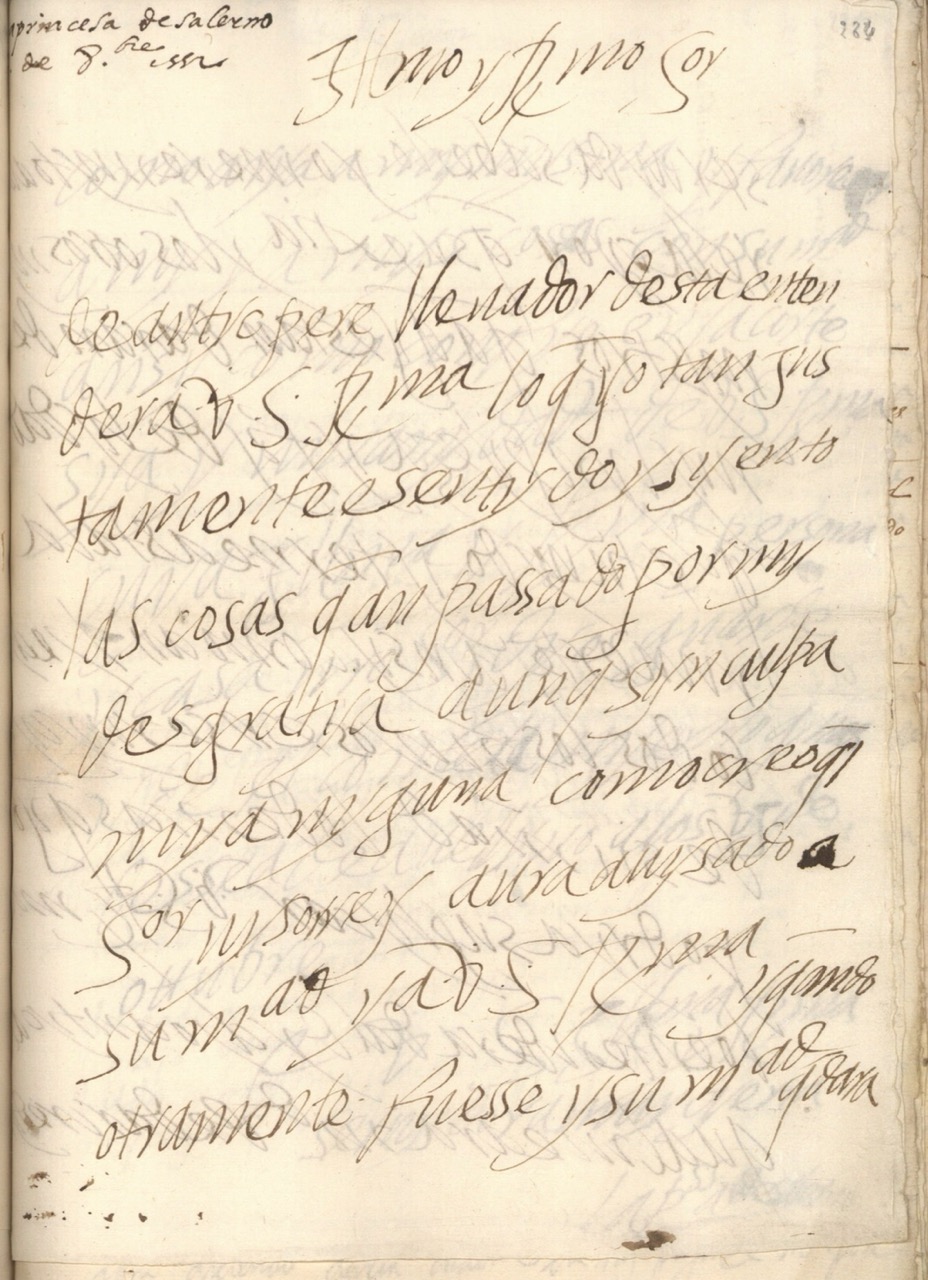 princesa de salerno
de 8.bre 552
284
Illmo y Rmo Sor
de antic pere llevador desta enten
dera V. S. Rma lo q̄ yo tan jus
tamente e sentydo y syento
las cosas q̄ an passado por my
desgratia aunq̄ syn culpa
mya nyguna como creo q̄ l
Sor vysorrey aura avysado a
su mad y a V. S. Rma y q̄ando
otramente fuesse y su mad q̄dara